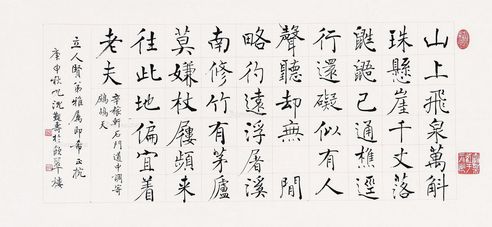 山上飛泉萬斛
珠懸崖千丈落
鼪鼯已通樵逕
行還礙似有人
聲聽却無 閒
略彴遠浮屠溪
南修竹有茅廬
莫嫌杖屨頻來
往此地偏宜着
老夫
辛稼軒石門道中調寄
鷓鴣天
立人賢弟雅屬即希正抗
庚申秋